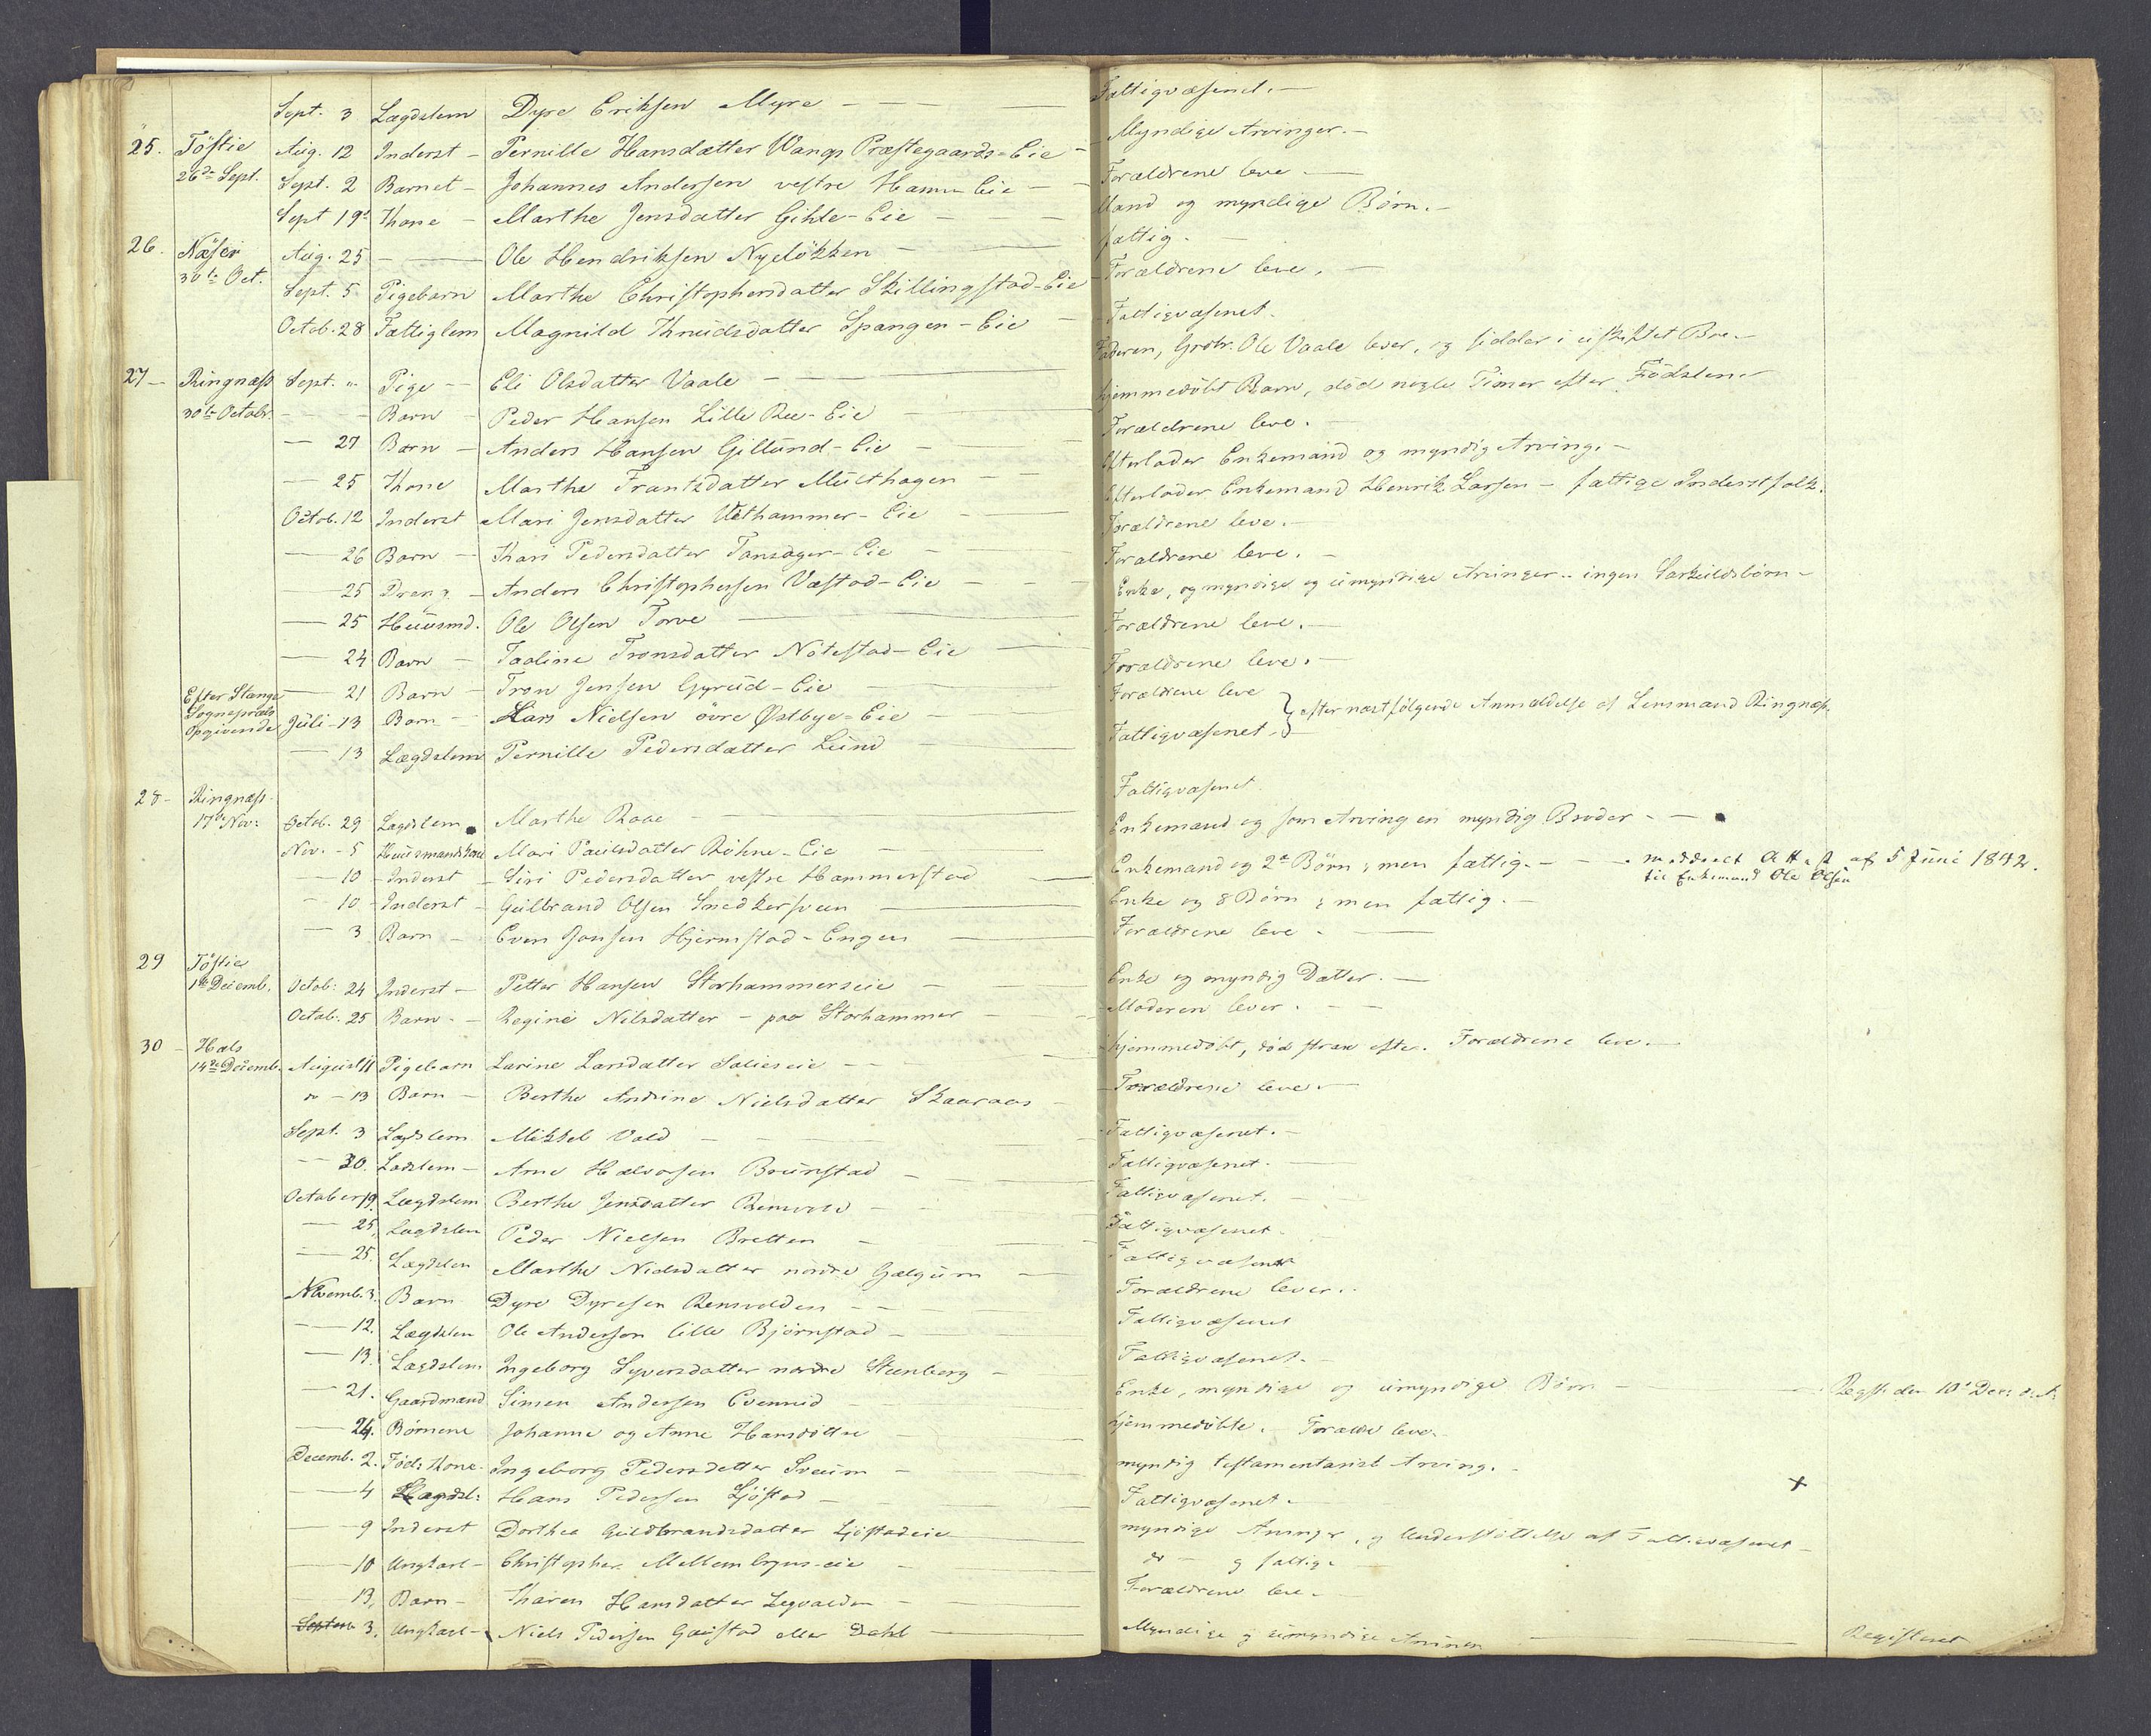 Sept. 3 Lægdslem Dyre Eriksen Myre — Fattigvæsenet.
25. Töftie Aug. 12 Inderst Pernille Hansdatter Wangs Præstegaards-Eie — Myndige Arvinger.
26de Sept. Sept. 2 Barnet Johannes Andersen vestre Hamm Eie — Forældrene leve.
Sept 19de Kone Marthe Jensdatter Gihle-Eie — Mand og myndige Børn.
26. Næser Aug. 25 Ole Hendriksen Nyeløkken — fattig.
30te Oct. Sept. 5 Pigebarn Marthe Christophersdatter Skillingstad-Eie — Forældrene leve.
Octob. 28 Fattiglem Magnild Knudsdatter Spangen-Eie — Fattigvæsenet.
27 Ringnæss Sept. " Pige Eli Olsdatter Vaale — Faderen, Grdbr. Ole Vaale lever, og sidder i uskiftet Boe.
30te Octobr. Barn Peder Hansen Lille Ree-Eie — hjemmedöbt Barn, död nogle Timer efter Födslen.
27 Barn Anders Hansen Gillund-Eie — Forældrene leve.
25 Kone Marthe Frantzdatter Multhagen — Efterlader Enkemand og myndig Arving.
Octob. 12 Inderst Mari Jensdatter Uthammer-Eie — Efterlader Enkemand Henrik Larsen — fattige Inderstfolk.
26 Barn Kari Pedersdatter Fansager-Eie — Forældrene leve.
25 Dreng Anders Christophersen Vastad-Eie — Forældrene leve.
25 Huusmd. Ole Olsen Torve — Enke, og myndige og umyndige Arvinger. ingen Særkuldsbörn —
24 Barn Taaline Tronsdatter Nötestad-Eie — Forældrene leve.
Efter Stange 21 Barn Tron Jensen Gyrud-Eie — Forældrene leve.
Sognepræsts Juli 13 Barn Lars Nielsen övre Østbye-Eie — Forældrene leve } efter næstfølgende Anmeldelse af Lensmand Ringnæss.
Opgivende
13 Lægdslem Pernille Pedersdatter Lund — Fattigvæsenet.
28 Ringnæss
17de Nov: Octob. 29 Lægdslem Marthe Roae — Fattigvæsenet
Nov. 5 Huusmandskone Mari Paulsdatter Röhne-Eie — Enkemand og som Arving en myndig Broder
10 Inderst Siri Pedersdatter vestre Hammerstad — Enkemand og 2de Börn; men fattig. — meddeelt Attest af 5 Juni 1842.
til Enkemand Ole Olsen
10 Inderst Gulbrand Olsen Snedkersveen — Enke og 8 Börn; men fattig.
3 Barn Even Jonsen Hjermstad-Engen — Forældrene leve
29 Töftie
1ste Decemb. Octob: 24 Inderst Petter Hansen Storhammerseie — Enke og myndig Datter.
Octob. 25 Barn Regine Nilsdatter — paa Storhammer — Moderen lever.
30 Hals
14de Decemb. August 11 Pigebarn Larine Larsdatter Salieseie — hjemmedöbt, död strax efter. Forældrene leve.
do 13 Barn Berthe Andrine Nielsdatter Skaaraas — Forældrene leve
Sept. 3 Lægdslem Mikkel Vold — Fattigvæsenet.
30. Lædslem Arne Halvorsen Brunstad — Fattigvæsenet.
October 19. Lægdslem Berthe Jensdatter Rensvold — Fattigvæsenet.
25. Lægdslem Peder Nielsen Bretten — Fattigvæsenet.
25. Lægdslem Marthe Nielsdatter nordre Galgum — Fattigvæsenet
Novemb. 3. Barn Dyre Dyresen Rensvolden — Forældrene lever.
12. Lægdslem Ole Andersen lille Bjørnstad — Fattigvæsenet
13. Lægdslem Ingeborg Syversdatter nordre Steenberg — Fattigvæsenet.
21. Gaardmand Simen Andersen Evenrud — Enke, myndige og umyndige Børn — Regist. den 10de Dec:
24. Børnene Johanne og Anne Hansdöttre — hjemmedöbte. Forældre leve.
Decemb. 2. Föd: Kone Ingeborg Pedersdatter Sveum — myndig testamentarisk Arving.
4 Lægdsl: Hans Pedersen Ljøstad — Fattigvæsenet. x
9 Inderst Dorthea Guldbrandsdatter Ljöstadeie — myndige Arvinger, og Understøttelse af Fattigvæsenet
10 Ungkarl Christopher Mellembyes-eie — do og fattig.
13, Barn Karen Hansdatter Legvolden — Forældrene leve.
Septemb 3, Ungkarl Niels Pedersen Gaustad eller Dahl — Myndige og umyndige Arvinger — Registeret